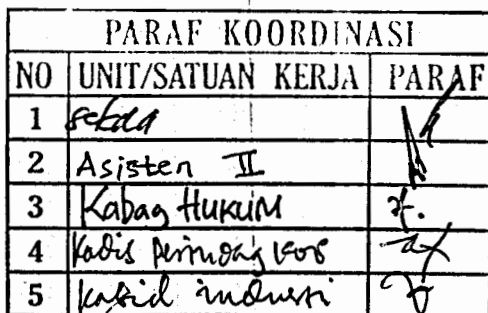 PARAF KOORDINASI
NO UNIT/SATUAN KERJA PARAF
1 Sekda
2 Asisten II
3 Kabag HUKUM
4 Kadis Perindag
5 Kabid industri